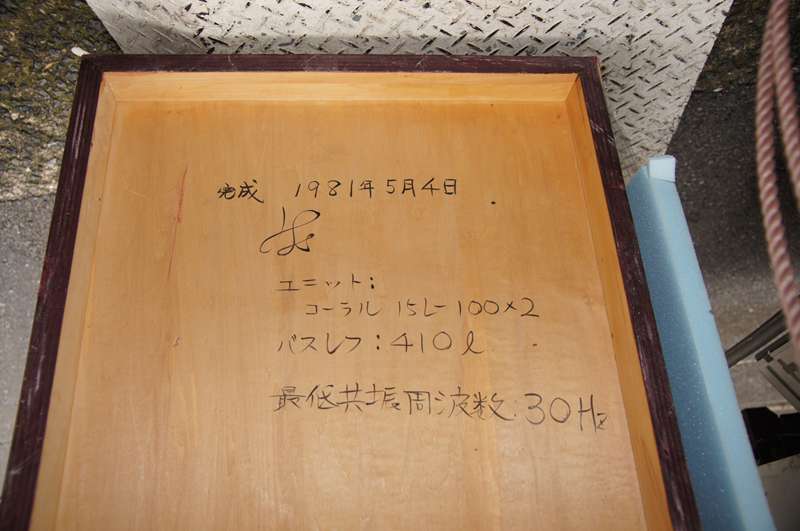 完成 1981年5月4日
ユニット:
コーラル 15L-100×2
バスレフ:410ℓ
最低共振周波数:30Hz